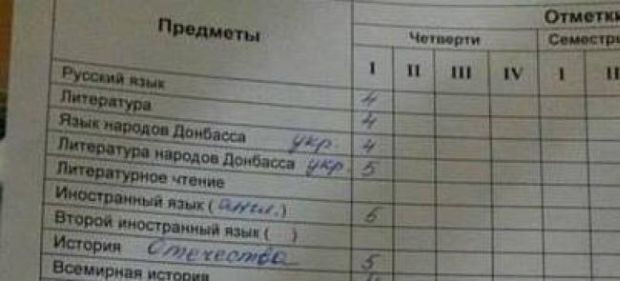 Предметы
Отметки
Четверти
Семестры
I II III IV I II
Русский язык 4
Литература 4
Язык народов Донбасса укр. 4
Литература народов Донбасса укр. 5
Литературное чтение
Иностранный язык ( англ. ) 5
Второй иностранный язык ( )
История Отечества 5
Всемирная история